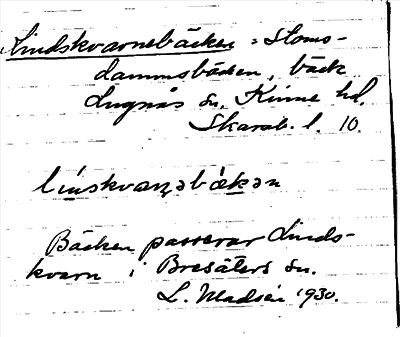 Lindskvarnebäcken = Stoms-
dammsbäcken, bäck
Lugnås sn. Kinne hd.
Skarab. l. 10.
línskvaɳəbɛ́kən
Bäcken passerar Linds-
kvarn i Bresäters sn.
L. Madsén 1930.